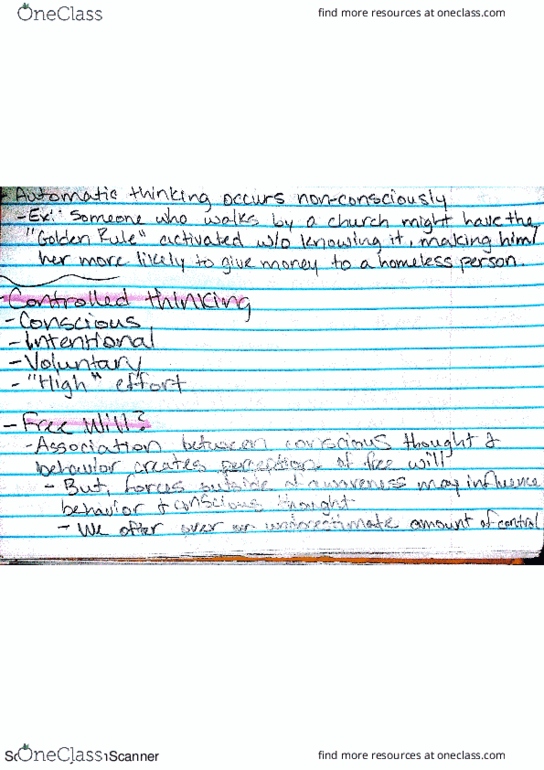 OneClass
find more resources at oneclass.com
Automatic thinking occurs non-consciously
-Ex: Someone who walks by a church might have the
"Golden Rule" activated w/o knowing it, making him/
her more likely to give money to a homeless person.
Controlled thinking
-Conscious
-Intentional
-Voluntary
-"High" effort
-Free Will?
-Association between conscious thought &
behavior creates perception of free will
- But, forces outside of awareness may influence
behavior & conscious thought
- We often over or underestimate amount of control
OneClass
Scanner
find more resources at oneclass.com